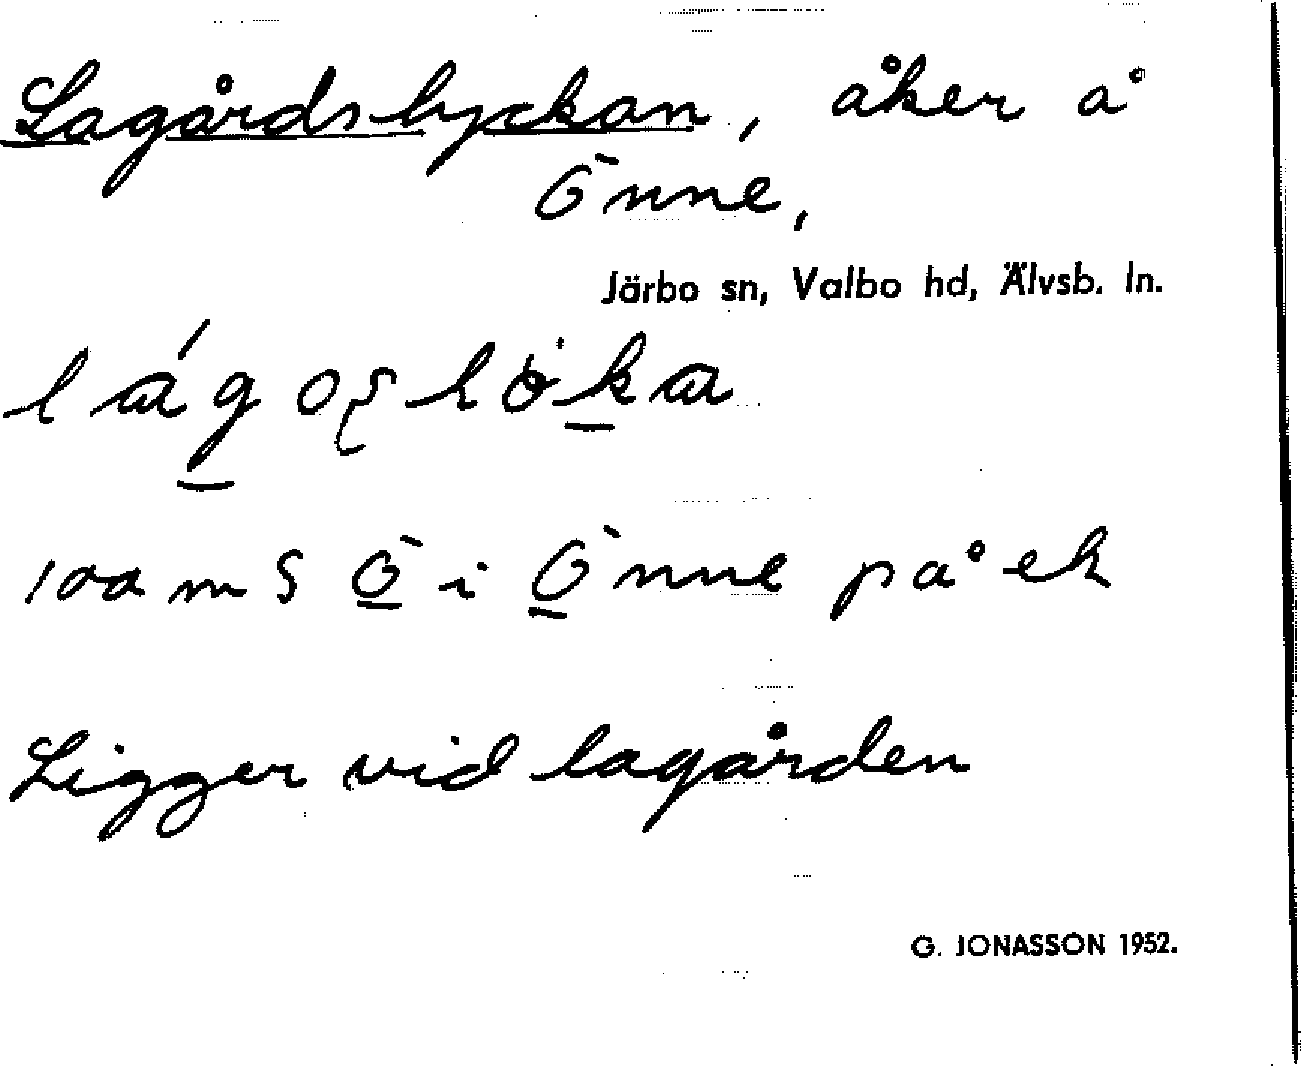 Lagårdslyckan, åker å
Önne,
Järbo sn, Valbo hd, Älvsb. ln.
100 m S Ö i Önne på ek
Ligger vid lagården
G. JONASSON 1952.